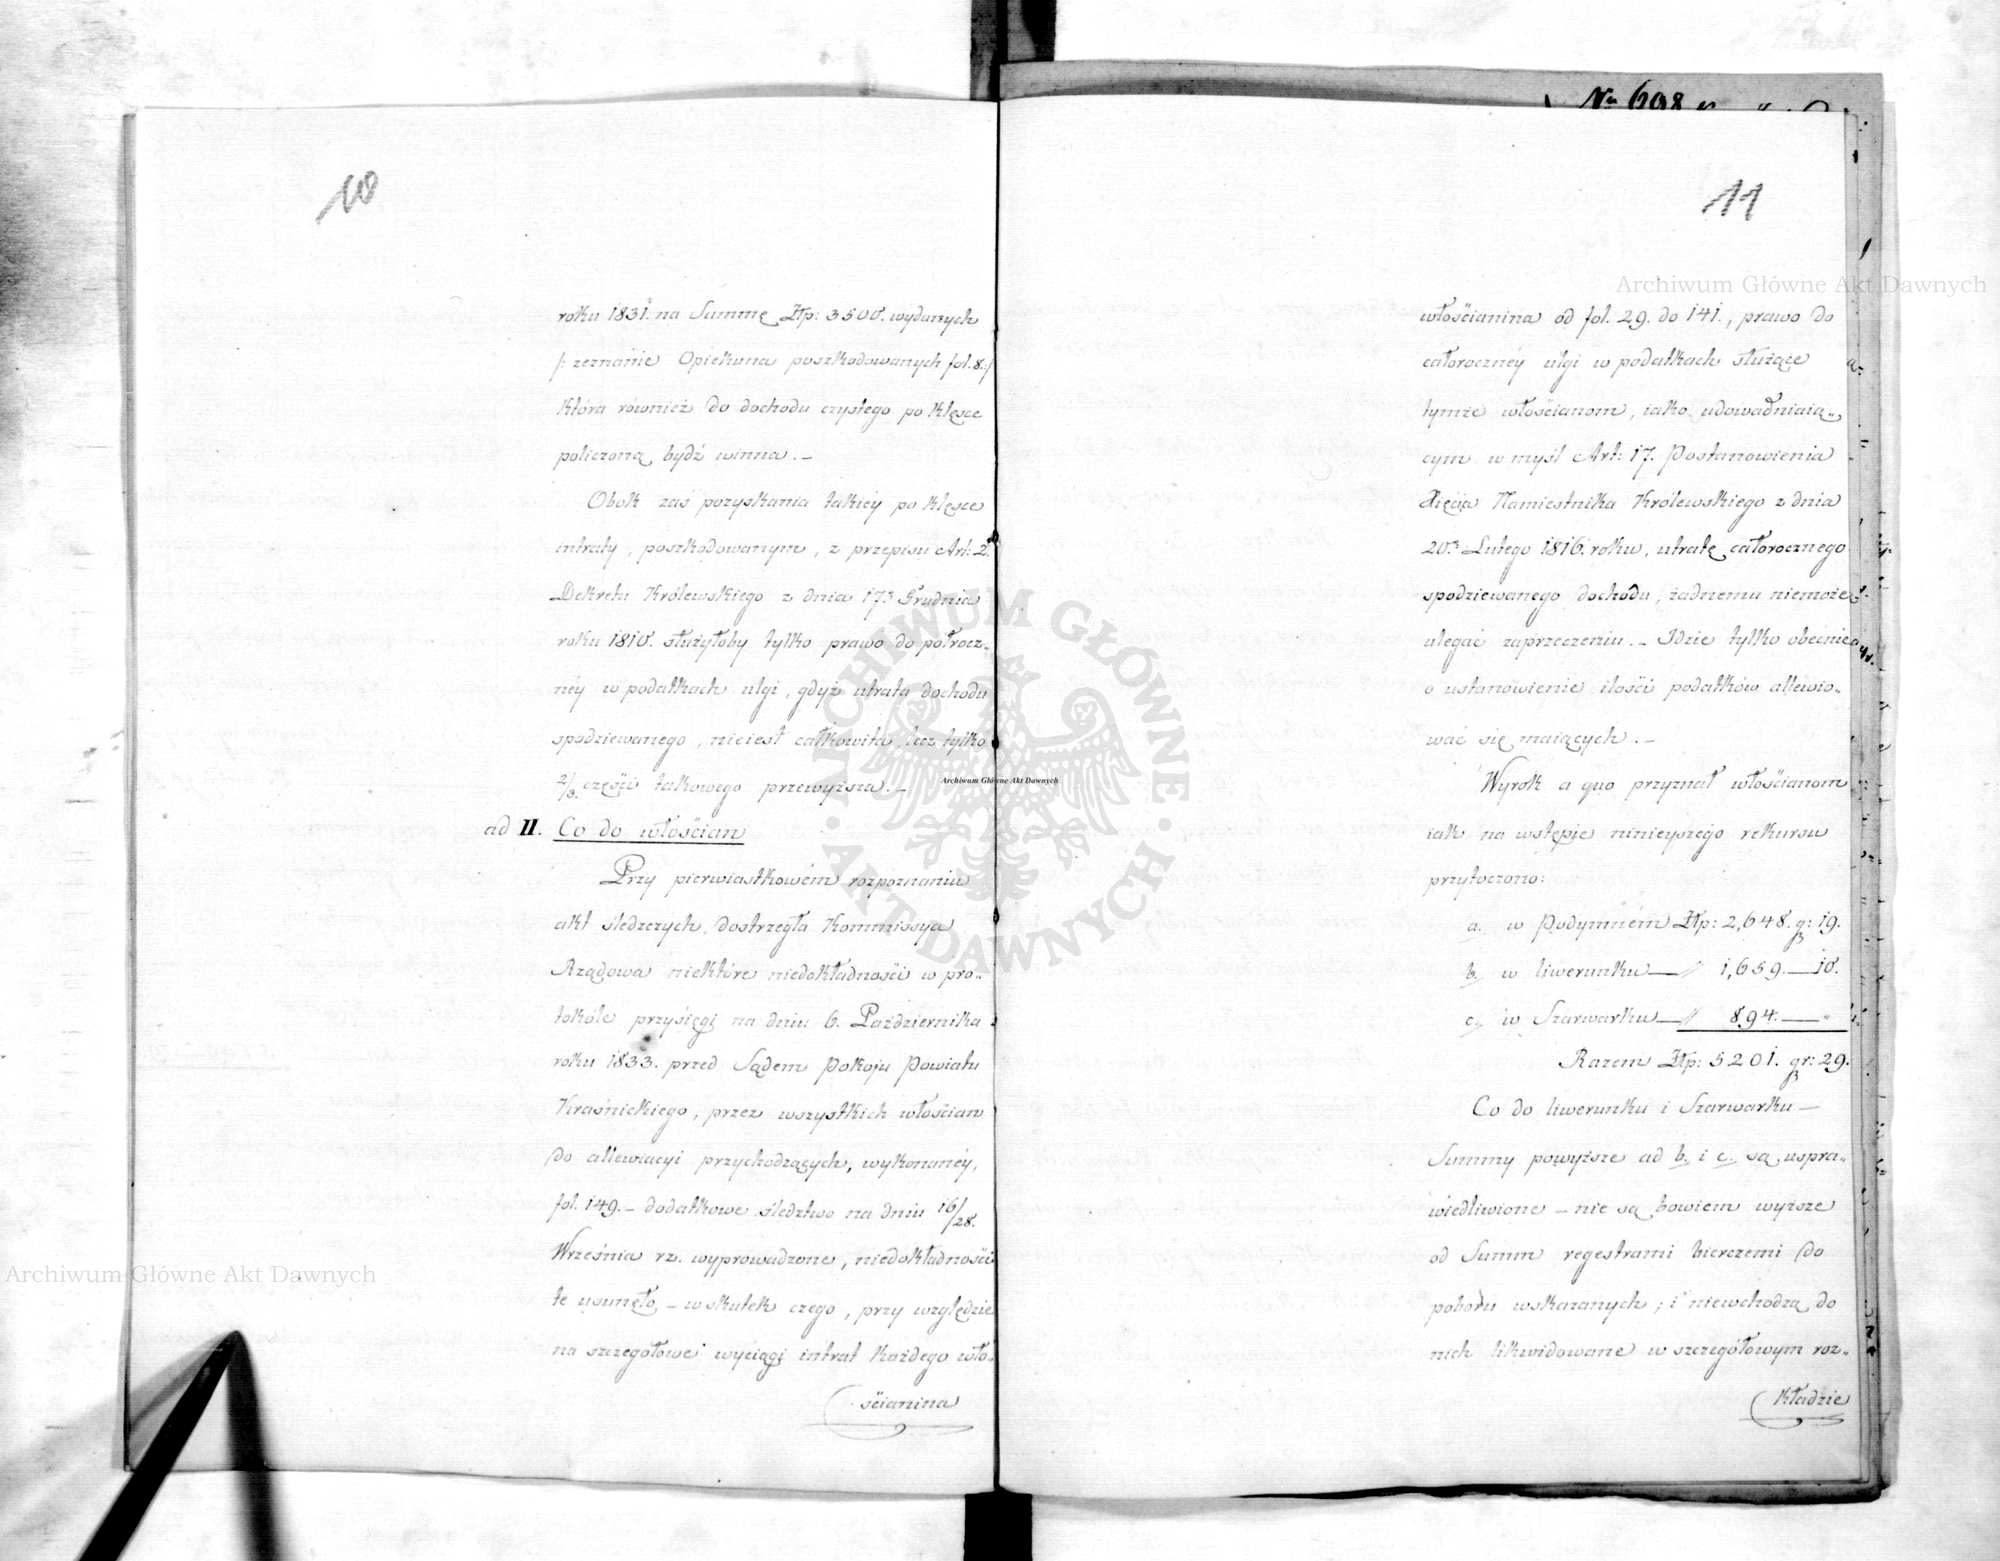 10
roku 1831. na Summę Złp: 3500. wydanych
/: zeznanie Opiekuna poszkodowanych fol. 8.:/
która również do dochodu czystego po klęsce
policzoną bydź winna. –
Obok zaś pozyskania takiéy po klęsce
intraty, poszkodowanym, z przepisu Art: 2.
Dekretu Królewskiego z dnia 17. Grudnia
roku 1810. służyłoby tylko prawo do półrocz„
néy w podatkach ulgi, gdyż utrata dochodu
spodziewanego, nieiest całkowita, lecz tylko
2/3. części takowego przewyższa. –
ad II. Co do włościan
Przy pierwiastkowém rozpoznaniu
akt śledczych, dostrzegła Kommissya
Rządowa niektóre niedokładności w pro„
tokóle przysięgi na dniu 6. Października
roku 1833. przed Sądem Pokoju Powiatu
Kraśnickiego, przez wszystkich włościan
do allewiacyi przychodzących, wykonanéy,
fol. 149. – dodatkowe śledztwo na dniu 16/28.
Września rz. wyprowadzone, niedokładności
te usunęło, – w skutek czego, przy względzie
na szczegółowe wyciągi intrat każdego wło„
ścianina
Nr 698
11
włościanina od fol. 29. do 141., prawo do
całorocznéy ulgi w podatkach służące
tymże włościanom, iako udowadniaią„
cym w myśl Art: 17. Postanowienia
Xięcia Namiestnika Królewskiego z dnia
20. Lutego 1816. roku, utratę całorocznego
spodziewanego dochodu, żadnemu niemoże
ulegać zaprzeczeniu. – Idzie tylko obecnie
o ustanowienie ilości podatków allewio„
wać się maiących. –
Wyrok a quo przyznał włościanom
iak na wstępie ninieyszego rekursu
przytoczono:
a. w Podymném Złp: 2,648. gr: 19.
b. w liwerunku — „ 1,659. — 10.
c. w Szarwarku — „ 894. — „
Razem Złp: 5201. gr: 29.
Co do liwerunku i Szarwarku —
Summy powyższe ad b. i c. są uspra„
wiedliwione – nie są bowiem wyższe
od Summ regestrami bierczemi do
poboru wskazanych; i niewchodzą do
nich likwidowane w szczegółowym roz„
kładzie
Archiwum Główne Akt Dawnych
Archiwum Główne Akt Dawnych
Archiwum Główne Akt Dawnych
ARCHIWUM GŁÓWNE · AKT DAWNYCH ·